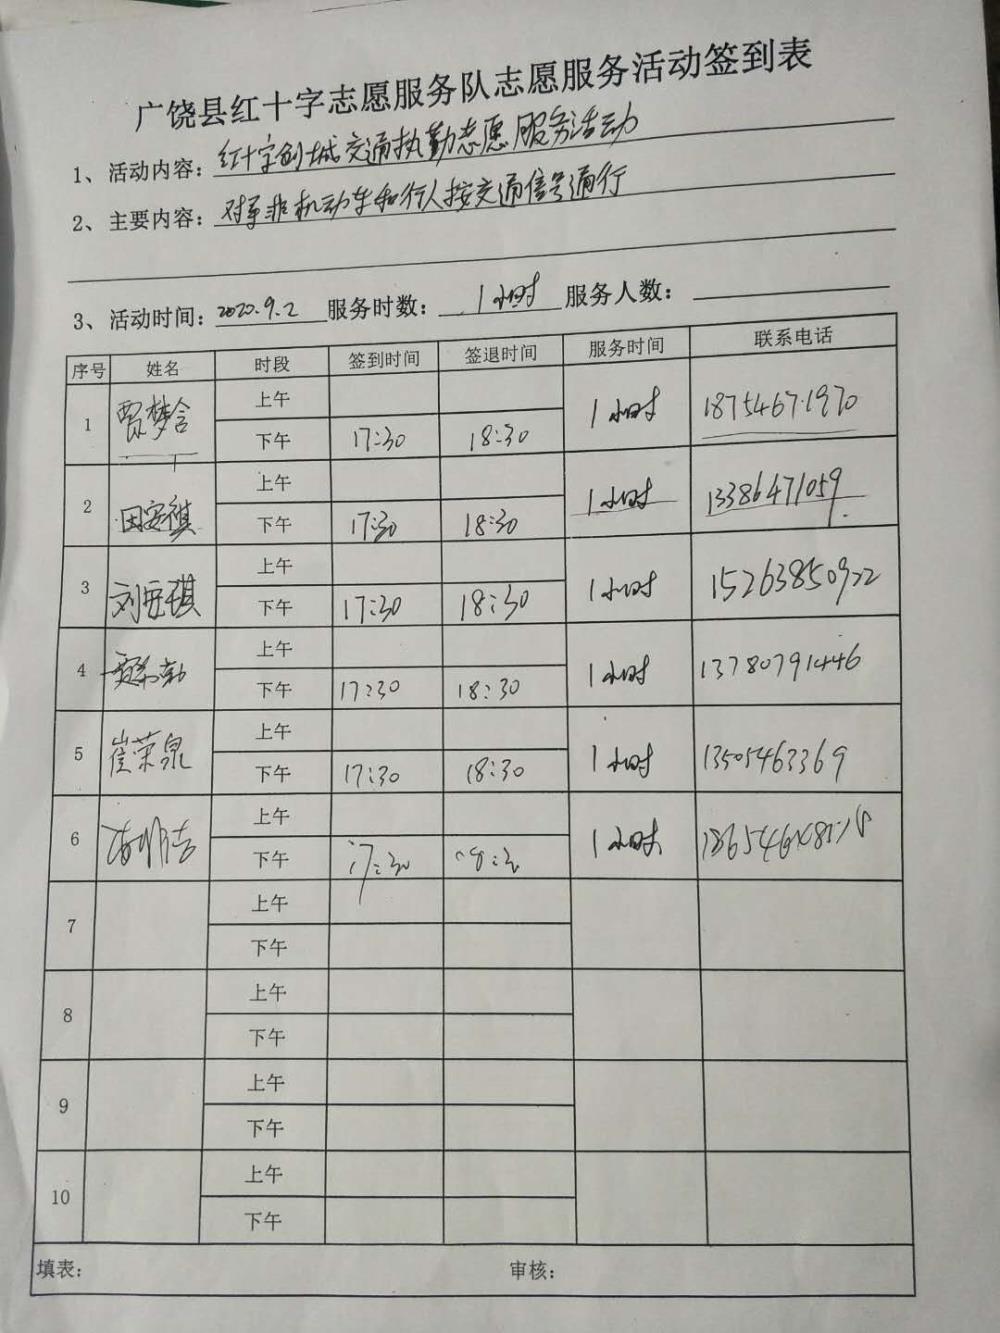 广饶县红十字志愿服务队志愿服务活动签到表
1、活动内容：红十字创城交通执勤志愿服务活动
2、主要内容：对非机动车和行人按交通信号通行
3、活动时间：2020.9.2 服务时数：1小时 服务人数：
序号 姓名 时段 签到时间 签退时间 服务时间 联系电话
1 贾梦含 上午 1小时 18754671970
下午 17:30 18:30
2 田安祺 上午 1小时 13386471059
下午 17:30 18:30
3 刘安琪 上午 1小时 15263850922
下午 17:30 18:30
4 上午 1小时 13780791446
下午 17:30 18:30
5 崔荣泉 上午 1小时 13505463369
下午 17:30 18:30
6 上午 1小时
下午 17:30
7 上午
下午
8 上午
下午
9 上午
下午
10 上午
下午
填表： 审核：